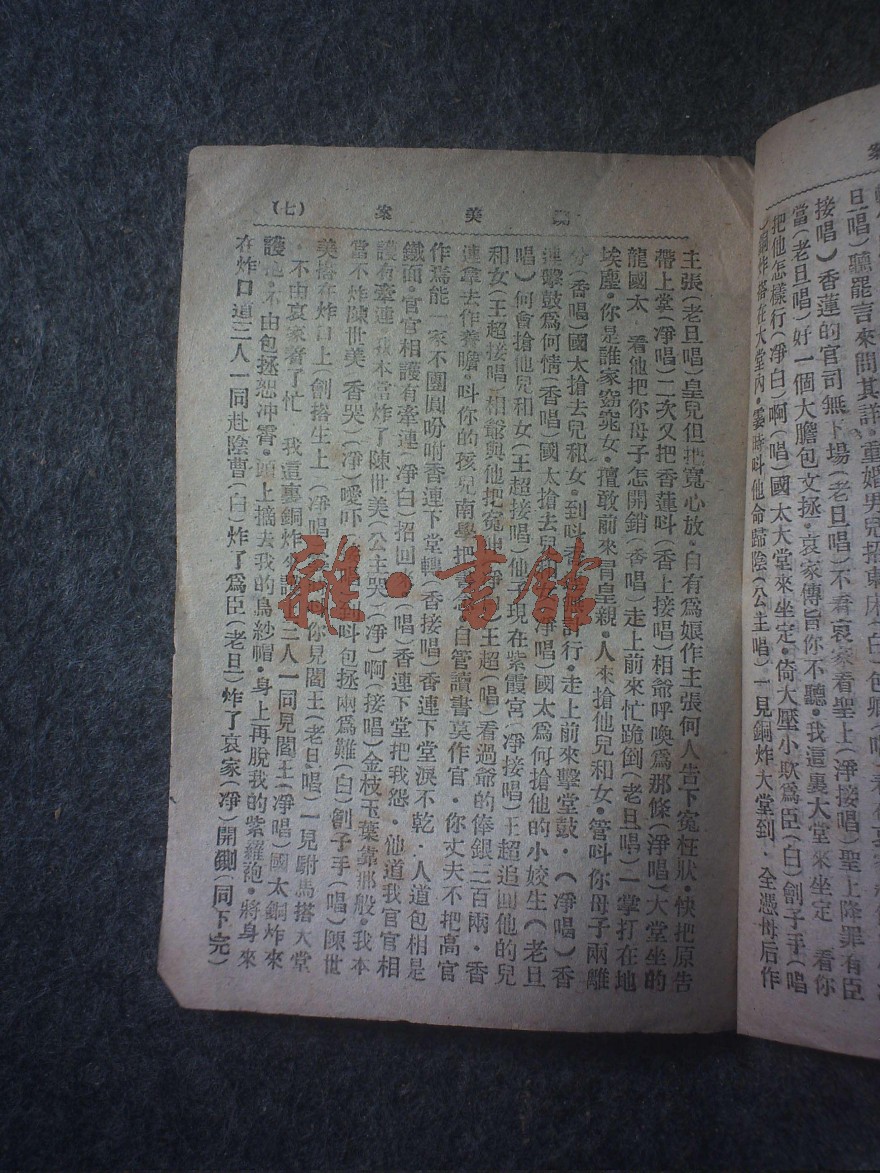 旦唱)聽罷言來問其詳•重婚男兒招東床(白)包卿(唱)看
接唱)香蓮的官司無下場(老旦唱)不看哀家看聖上(淨接唱)聖上降罪有臣
當(老旦唱)好一個大膽包文拯•哀家傳旨你不聽•我這裏大堂來坐定 看你
把他怎樣行(淨白)啊(唱)國太大堂來坐定•倚大壓小欺爲臣(白)劊子手(唱
銅炸搭在大堂內•霎時呌他命歸陰(公主唱)一見銅炸大堂到•全憑母后作
美 案 (七)
主張(老旦唱)皇兒但把寬心放•自有爲娘作主張何人告下冤枉狀•快把原告
帶上堂(淨唱)二次又把香蓮呌(香上接唱)相爺呼喚爲那條(淨唱)大堂坐的
龍國太 看他把你母子怎開銷(香唱)走上前來忙跪倒(老旦唱)一掌打在地
埃塵•你是誰家窈窕女•擅敢前來冒皇親•人來搶他兒和女•管呌你母子兩離
分(香唱)國太搶去兒和女•到呌香 無計行•走上前來擊堂鼓•(淨唱)香
連擊鼓爲何情(香唱)國太搶去兒 淨唱)國太爲何搶他的小姣生(老旦
唱)何會搶他兒和女(王超接唱)他子現在紫霞宮 淨接唱)王超追回他的兒
和女(王超接唱)相爺與他把冤 淨 )王超(唱)看過爺的俸銀三百兩•香
連拿去作養贍•呌你的孩兒南學把書念 自管讀書莫作官•你丈夫不把高官
作焉能一家不團圓吩咐香連下堂轉(香接唱)香連下堂淚不乾•人道包相是
鐵面•官官相護有牽連 淨白)招回 (唱)香連下堂把我怨•他道我官官相
護有牽連 我本當炸了陳世美(公主哭)(淨)啊(接唱)金枝玉葉靠那般•我本
當不炸陳世美 香哭)(淨)噯吓 呌包拯兩爲難(白)劊子手(唱)陳世
美搭在炸口上(劊搭生上)(淨唱 你見閻王(老旦唱)一見駙馬搭大堂
•不由哀家着了忙 我這裏銅炸來 二人一同見閻王(淨唱)國太銅炸來
護他•不由包拯恕冲霄•頭上摘去我的烏紗帽•身上再脫我的紫羅袍•將身來
在炸口道三人一同赴陰曹(白)炸了爲臣(老旦)炸了哀家(淨)開鍘(同下完)
雜•書館